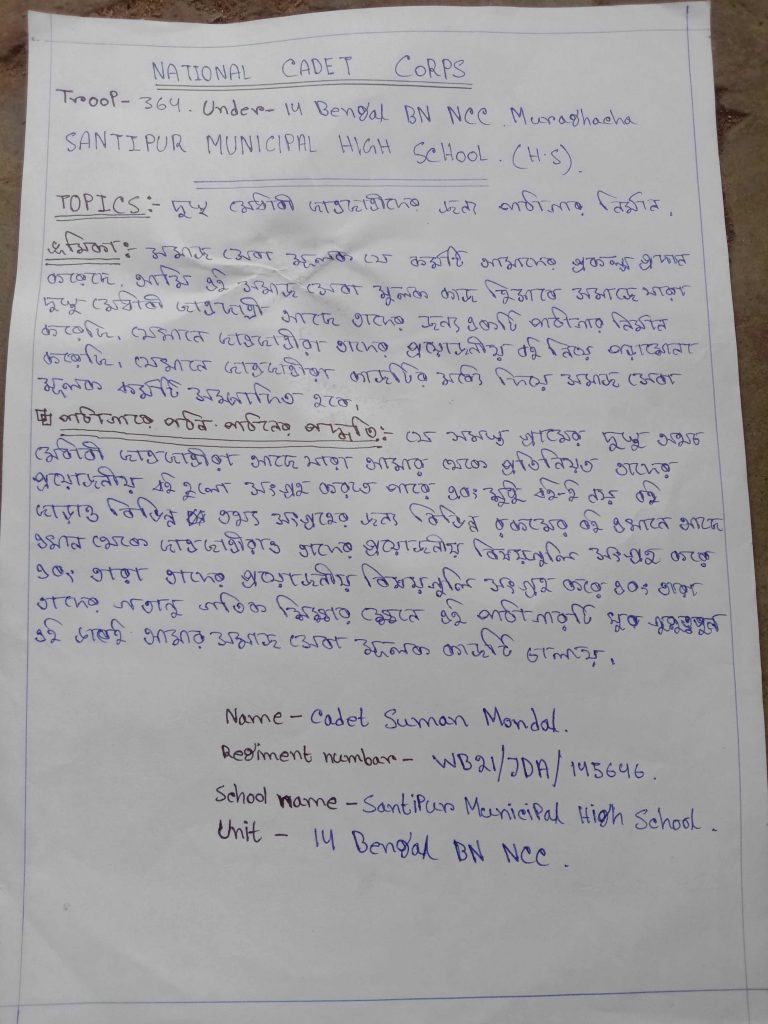 NATIONAL CADET CORPS
Troop- 364. Under- 14 Bengal BN NCC. Muraghacha
SANTIPUR MUNICIPAL HIGH SCHOOL. (H.S).
TOPICS:- দুস্থ মেধাবী ছাত্রছাত্রীদের জন্য পাঠাগার নির্মান.
ভূমিকা: সমাজ সেবা মূলক যে কর্মটি আমাদের প্রকল্প প্রদান
করেছে. আমি এই সমাজ সেবা মূলক কাজ হিসাবে সমাজে যারা
দুস্থ মেধাবী ছাত্রছাত্রী আছে তাদের জন্য একটি পাঠাগার নির্মান
করেছি. যেখানে ছাত্রছাত্রীরা তাদের প্রয়োজনীয় বই নিয়ে পড়াশোনা
করেছি. যেখানে ছাত্রছাত্রীরা কাজটির মধ্যে দিয়ে সমাজ সেবা
মূলক কর্মটি সম্পাদিত হবে.
পাঠাগারে পঠন-পাঠনের পদ্ধতি:- যে সমস্ত গ্রামের দুস্থ অথচ
মেধাবী ছাত্রছাত্রীরা আছে যারা আমার থেকে প্রতিনিয়ত তাদের
প্রয়োজনীয় বই গুলো সংগ্রহ করতে পারে এবং শুধু বই-ই নয় বই
ছাড়াও বিভিন্ন তথ্য সংগ্রহের জন্য বিভিন্ন রকমের বই এখানে আছে
এখান থেকে ছাত্রছাত্রীরাও তাদের প্রয়োজনীয় বিষয়গুলি সংগ্রহ করে
এবং তারা তাদের প্রয়োজনীয় বিষয়গুলি সংগ্রহ করে এবং তারা
তাদের গতানুগতিক শিক্ষার ক্ষেত্রে এই পাঠাগারটি খুব গুরুত্বপূর্ন
এই ভাবেই আমার সমাজ সেবা মূলক কাজটি চালায়.
Name - Cadet Suman Mondal.
Regiment numbar - WB21/JDA/145646.
School name - Santipur Municipal High School.
Unit - 14 Bengal BN NCC.